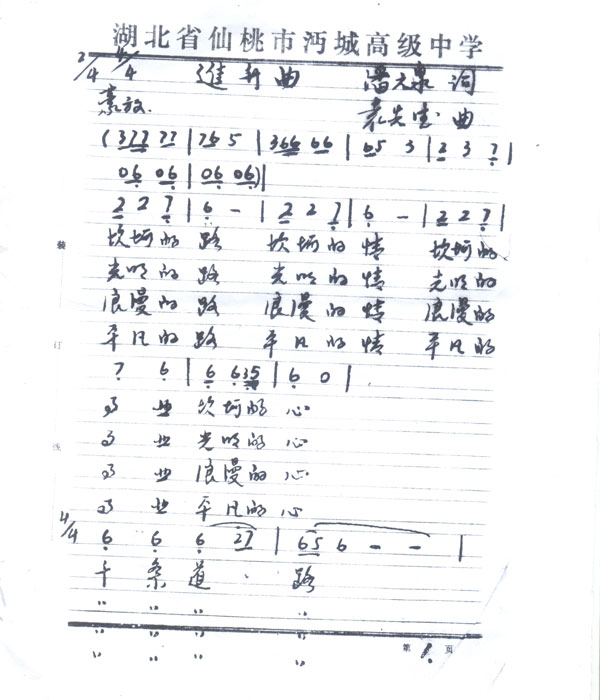 湖北省仙桃市沔城高级中学
2/4 4/4 进行曲 潘大泉 词
豪放 袁先宝 曲
(377 77 | 76 5 | 366 66 | 65 3 | 2 3 7 |
06 06 | 06 06) |
2 2 7 | 6 - | 2 2 7 | 6 - | 2 2 7 |
坎坷的 路 坎坷的 情 坎坷的
光明的 路 光明的 情 光明的
浪漫的 路 浪漫的 情 浪漫的
平凡的 路 平凡的 情 平凡的
7 6 | 6 635 | 6 0 |
业 坎坷的 心
业 光明的 心
业 浪漫的 心
业 平凡的 心
4/4 6 6 6 27 | 65 6 - - |
千 条 道 路
" " " "
" " " "
" " " "
第 1 页
装
订
线